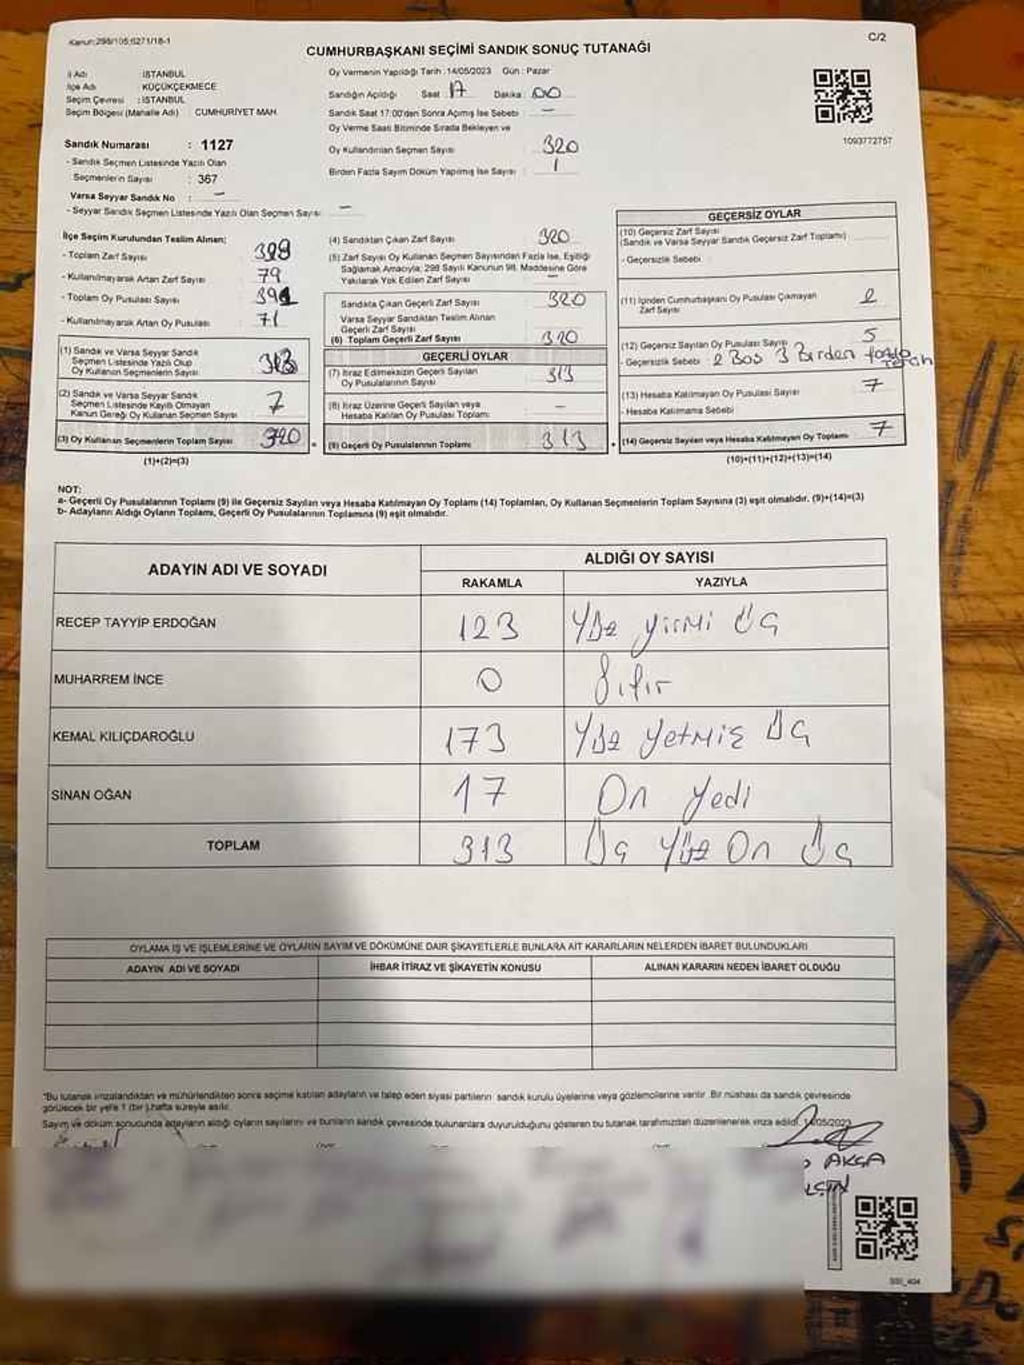 Kanun:298/105;6271/18-1
C/2
CUMHURBAŞKANI SEÇİMİ SANDIK SONUÇ TUTANAĞI
İl Adı : İSTANBUL
İlçe Adı KÜÇÜKÇEKMECE
Seçim Çevresi : İSTANBUL
Seçim Bölgesi (Mahalle Adı) CUMHURİYET MAH.
Sandık Numarası : 1127
- Sandık Seçmen Listesinde Yazılı Olan
Seçmenlerin Sayısı : 367
Varsa Seyyar Sandık No : -
- Seyyar Sandık Seçmen Listesinde Yazılı Olan Seçmen Sayısı -
Oy Vermenin Yapıldığı Tarih :14/05/2023 Gün : Pazar
Sandığın Açıldığı Saat : 17 Dakika : 00
Sandık Saat 17:00'den Sonra Açılmış İse Sebebi : -
Oy Verme Saati Bitiminde Sırada Bekleyen ve
Oy Kullandırılan Seçmen Sayısı : 320
Birden Fazla Sayım Döküm Yapılmış İse Sayısı : 1
1093772757
İlçe Seçim Kurulundan Teslim Alınan;
- Toplam Zarf Sayısı
- Kullanılmayarak Artan Zarf Sayısı : 79
- Toplam Oy Pusulası Sayısı :
- Kullanılmayarak Artan Oy Pusulası : 71
(1) Sandık ve Varsa Seyyar Sandık
Seçmen Listesinde Yazılı Olup
Oy Kullanan Seçmenlerin Sayısı 313
(2) Sandık ve Varsa Seyyar Sandık
Seçmen Listesinde Kayıtlı Olmayan
Kanun Gereği Oy Kullanan Seçmen Sayısı 7
(3) Oy Kullanan Seçmenlerin Toplam Sayısı 320
(1)+(2)=(3)
(4) Sandıktan Çıkan Zarf Sayısı 320
(5) Zarf Sayısı Oy Kullanan Seçmen Sayısından Fazla İse, Eşitliği
Sağlamak Amacıyla; 298 Sayılı Kanunun 98. Maddesine Göre
Yakılarak Yok Edilen Zarf Sayısı -
Sandıkta Çıkan Geçerli Zarf Sayısı 320
Varsa Seyyar Sandıktan Teslim Alınan
Geçerli Zarf Sayısı
(6) Toplam Geçerli Zarf Sayısı 320
GEÇERLİ OYLAR
(7) İtiraz Edilmeksizin Geçerli Sayılan
Oy Pusulalarının Sayısı 313
(8) İtiraz Üzerine Geçerli Sayılan veya
Hesaba Katılan Oy Pusulası Toplamı -
(9) Geçerli Oy Pusulalarının Toplamı 313
GEÇERSİZ OYLAR
(10) Geçersiz Zarf Sayısı
(Sandık ve Varsa Seyyar Sandık Geçersiz Zarf Toplamı)
- Geçersizlik Sebebi
(11) İçinden Cumhurbaşkanı Oy Pusulası Çıkmayan
Zarf Sayısı 2
(12) Geçersiz Sayılan Oy Pusulası Sayısı 5
- Geçersizlik Sebebi 2 Boş 3 Birden fazla
(13) Hesaba Katılmayan Oy Pusulası Sayısı 7
- Hesaba Katılmama Sebebi
(14) Geçersiz Sayılan veya Hesaba Katılmayan Oy Toplamı 7
(10)+(11)+(12)+(13)=(14)
NOT:
a- Geçerli Oy Pusulalarının Toplamı (9) ile Geçersiz Sayılan veya Hesaba Katılmayan Oy Toplamı (14) Toplamları, Oy Kullanan Seçmenlerin Toplam Sayısına (3) eşit olmalıdır. (9)+(14)=(3)
b- Adayların Aldığı Oyların Toplamı, Geçerli Oy Pusulalarının Toplamına (9) eşit olmalıdır.
ADAYIN ADI VE SOYADI ALDIĞI OY SAYISI
RAKAMLA YAZIYLA
RECEP TAYYİP ERDOĞAN 123 Yüz yirmi üç
MUHARREM İNCE 0 Sıfır
KEMAL KILIÇDAROĞLU 173 Yüz yetmiş üç
SİNAN OĞAN 17 On yedi
TOPLAM 313 Üç yüz On üç
OYLAMA İŞ VE İŞLEMLERİNE VE OYLARIN SAYIM VE DÖKÜMÜNE DAİR ŞİKAYETLERLE BUNLARA AİT KARARLARIN NELERDEN İBARET BULUNDUKLARI
ADAYIN ADI VE SOYADI İHBAR İTİRAZ VE ŞİKAYETİN KONUSU ALINAN KARARIN NEDEN İBARET OLDUĞU
*Bu tutanak imzalandıktan ve mühürlendikten sonra seçime katılan adayların ve talep eden siyasi partilerin sandık kurulu üyelerine veya gözlemcilerine verilir. Bir nüshası da sandık çevresinde
görülecek bir yere 1 (bir) hafta süreyle asılır.
Sayım ve döküm sonucunda adayların aldığı oyların sayılarını ve bunların sandık çevresinde bulunanlara duyurulduğunu gösteren bu tutanak tarafımızdan düzenlenerek imza edildi. 14/05/2023
AKÇA
SSI_404